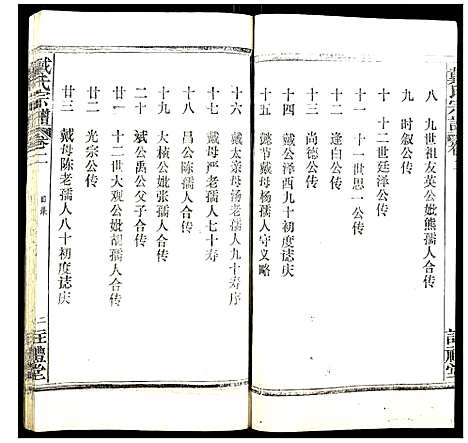 戴氏宗譜 卷二
八 九世祖友英公妣熊孺人合传
九 时叙公传
十 十二世廷泽公传
十一 十一世思一公传
十二 逢白公传
十三 尚德公传
十四 戴公泽西九十初度志庆
十五 懿节戴母杨孺人守义略
註禮堂
戴氏宗譜 卷二
十六 戴太亲母汤老孺人九十寿序
十七 戴母严老孺人七十寿
十八 昌公陈孺人合传
十九 大核公妣张孺人合传
二十 斌公禹公父子合传
廿一 十二世大观公妣胡孺人合传
廿二 光宗公传
廿三 戴母陈老孺人八十初度志庆
目录
二
註禮堂